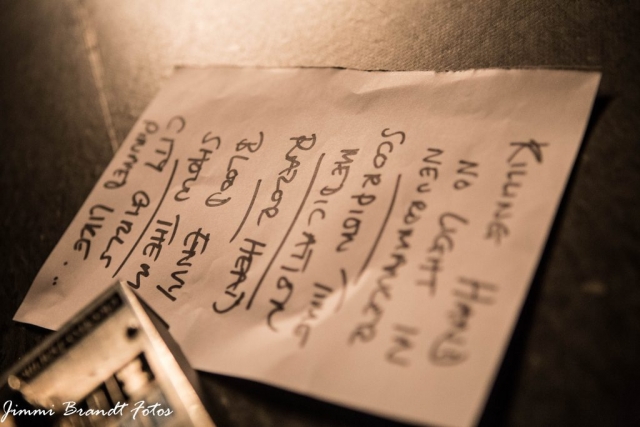 KILLING HAND
NO LIGHT IN
NEUROMANCER
SCORPION
MEDICATION
RAZOR HEAD
BLOOD ENVY
SHOW THEM
CITY GIRLS
PAINTED LIKE ..
Jimmi Brandt Fotos